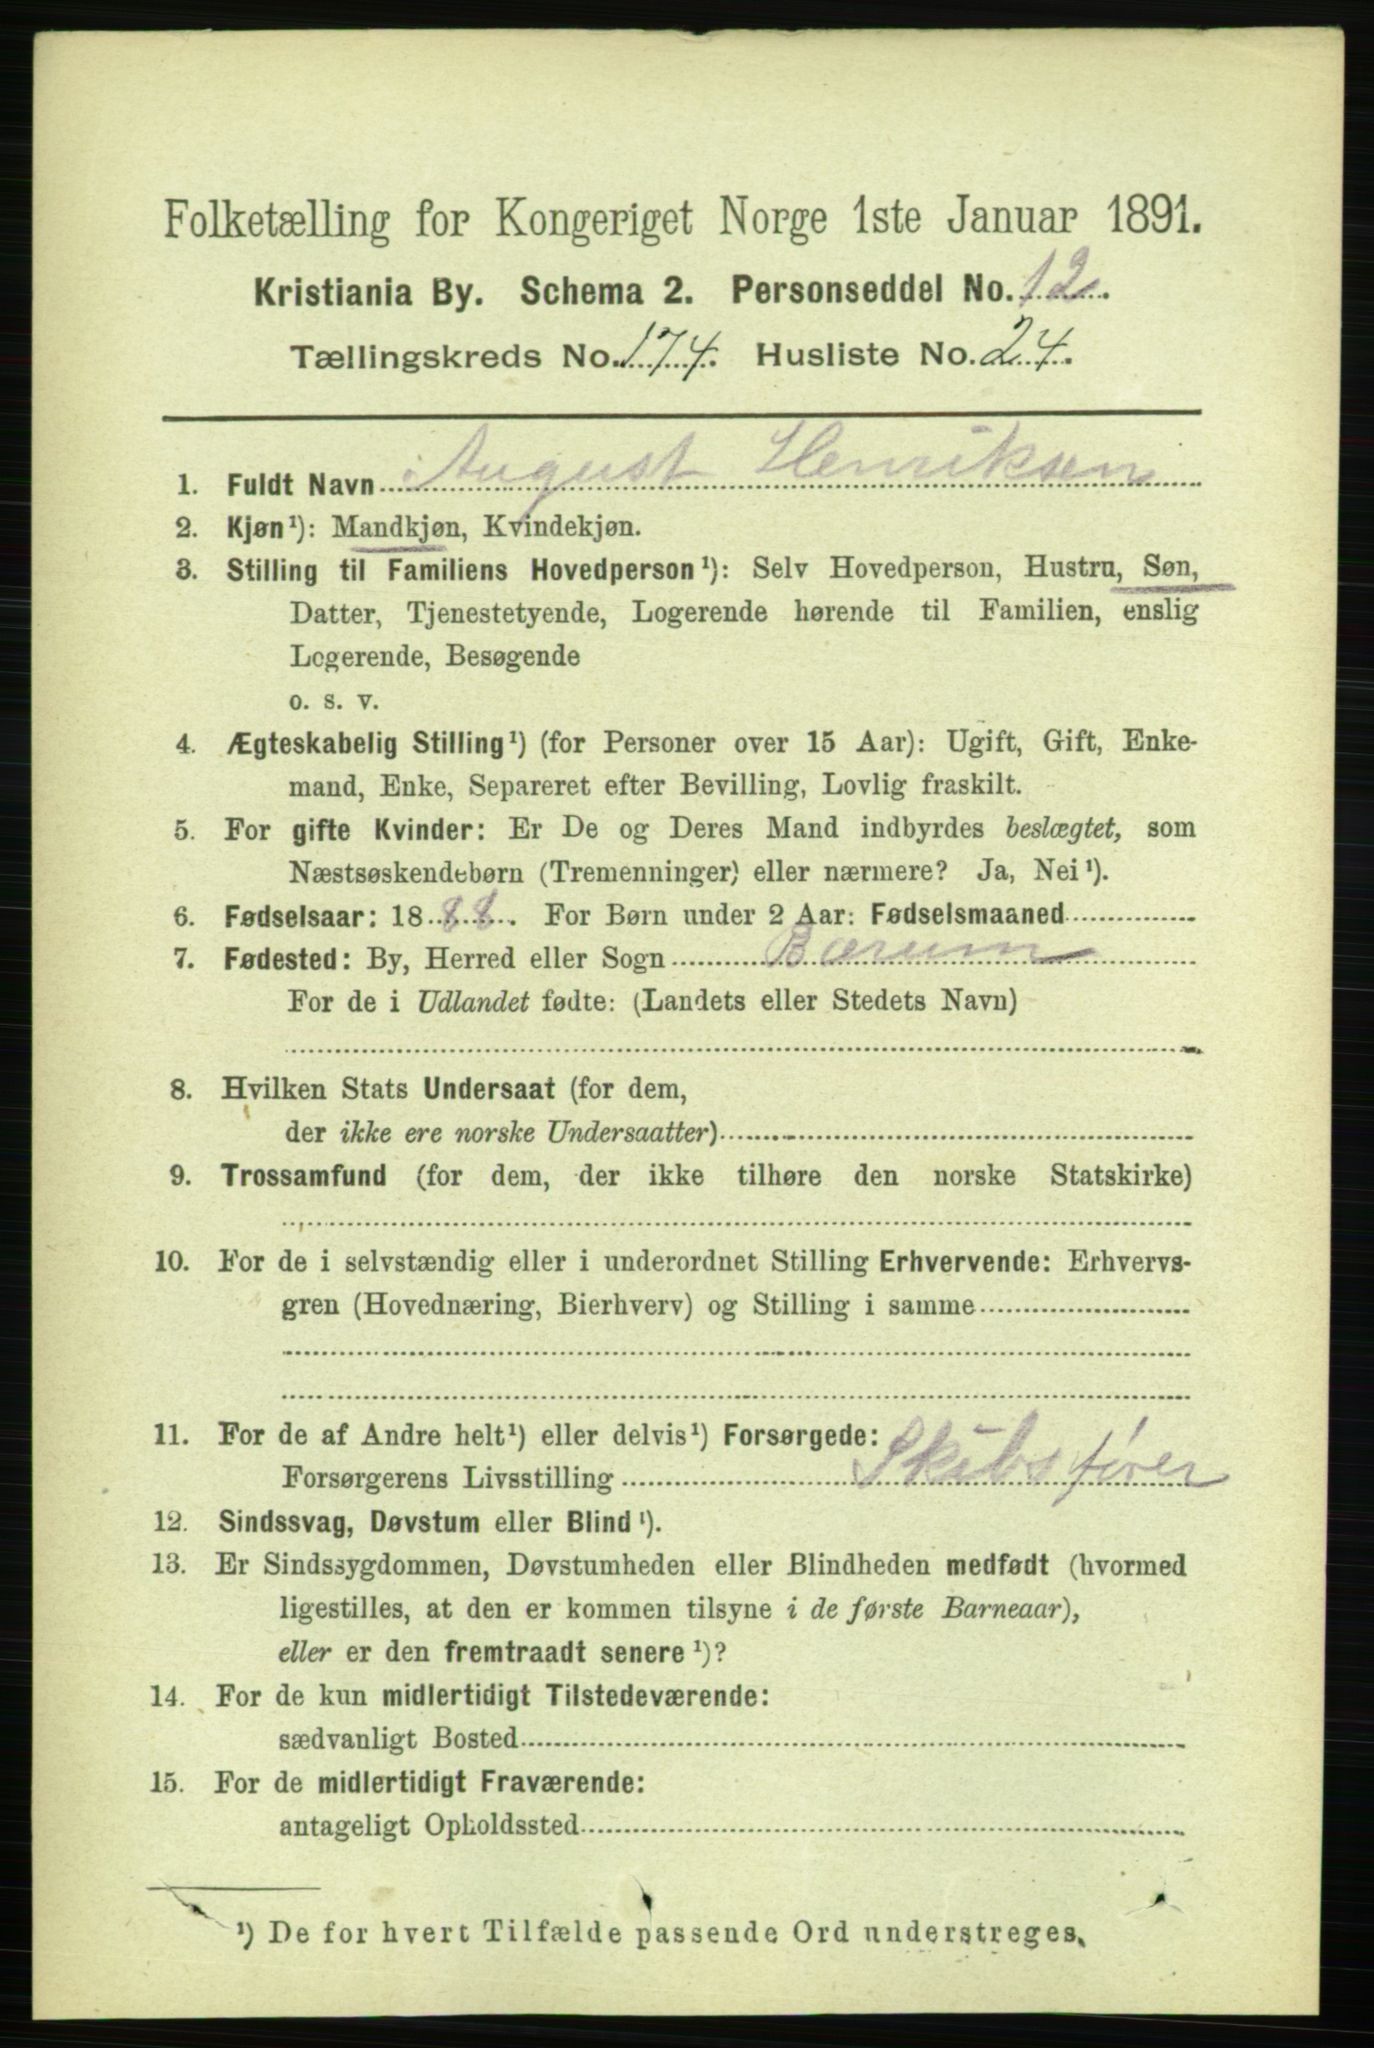 Folketælling for Kongeriget Norge 1ste Januar 1891.
Kristiania By. Schema 2. Personseddel No. 12.
Tællingskreds No. 174. Husliste No. 24.
1. Fuldt Navn August Henriksen
2. Kjøn¹): Mandkjøn, Kvindekjøn.
3. Stilling til Familiens Hovedperson¹): Selv Hovedperson, Hustru, Søn,
Datter, Tjenestetyende, Logerende hørende til Familien, enslig
Logerende, Besøgende
o. s. v.
4. Ægteskabelig Stilling¹) (for Personer over 15 Aar): Ugift, Gift, Enke-
mand, Enke, Separeret efter Bevilling, Lovlig fraskilt.
5. For gifte Kvinder: Er De og Deres Mand indbyrdes beslægtet, som
Næstsøskendebørn (Tremenninger) eller nærmere? Ja, Nei¹).
6. Fødselsaar: 1888. For Børn under 2 Aar: Fødselsmaaned
7. Fødested: By, Herred eller Sogn Bærum
For de i Udlandet fødte: (Landets eller Stedets Navn)
8. Hvilken Stats Undersaat (for dem,
der ikke ere norske Undersaatter)
9. Trossamfund (for dem, der ikke tilhøre den norske Statskirke)
10. For de i selvstændig eller i underordnet Stilling Erhvervende: Erhvervs-
gren (Hovednæring, Bierhverv) og Stilling i samme
11. For de af Andre helt¹) eller delvis¹) Forsørgede:
Forsørgerens Livsstilling Skibsfører
12. Sindssvag, Døvstum eller Blind¹).
13. Er Sindssygdommen, Døvstumheden eller Blindheden medfødt (hvormed
ligestilles, at den er kommen tilsyne i de første Barneaar),
eller er den fremtraadt senere¹)?
14. For de kun midlertidigt Tilstedeværende:
sædvanligt Bosted
15. For de midlertidigt Fraværende:
antageligt Opholdssted
¹) De for hvert Tilfælde passende Ord understreges.